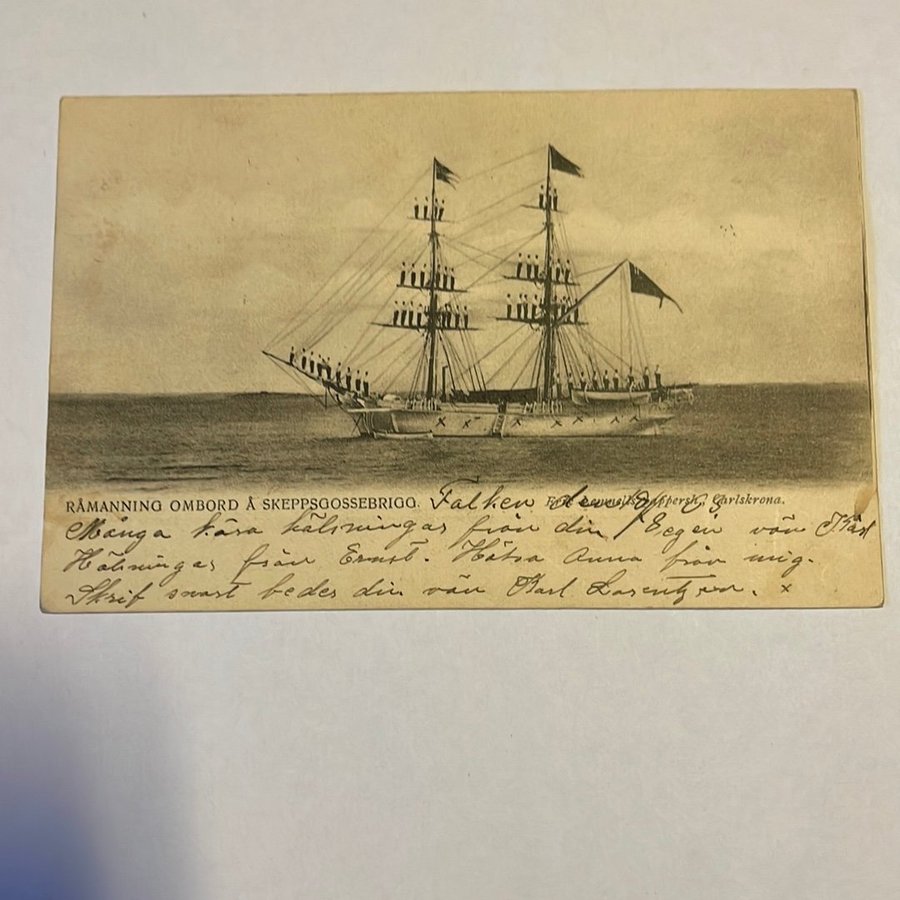 RÅMANNING OMBORD Å SKEPPSGOSSEBRIGG. Falken den Carlskrona.
Många kära hälsningar från din Egen vän Karl
Hälsningar från Ernst. Hälsa Anna från mig.
Skrif snart bedes din vän Karl Lorentzen. x